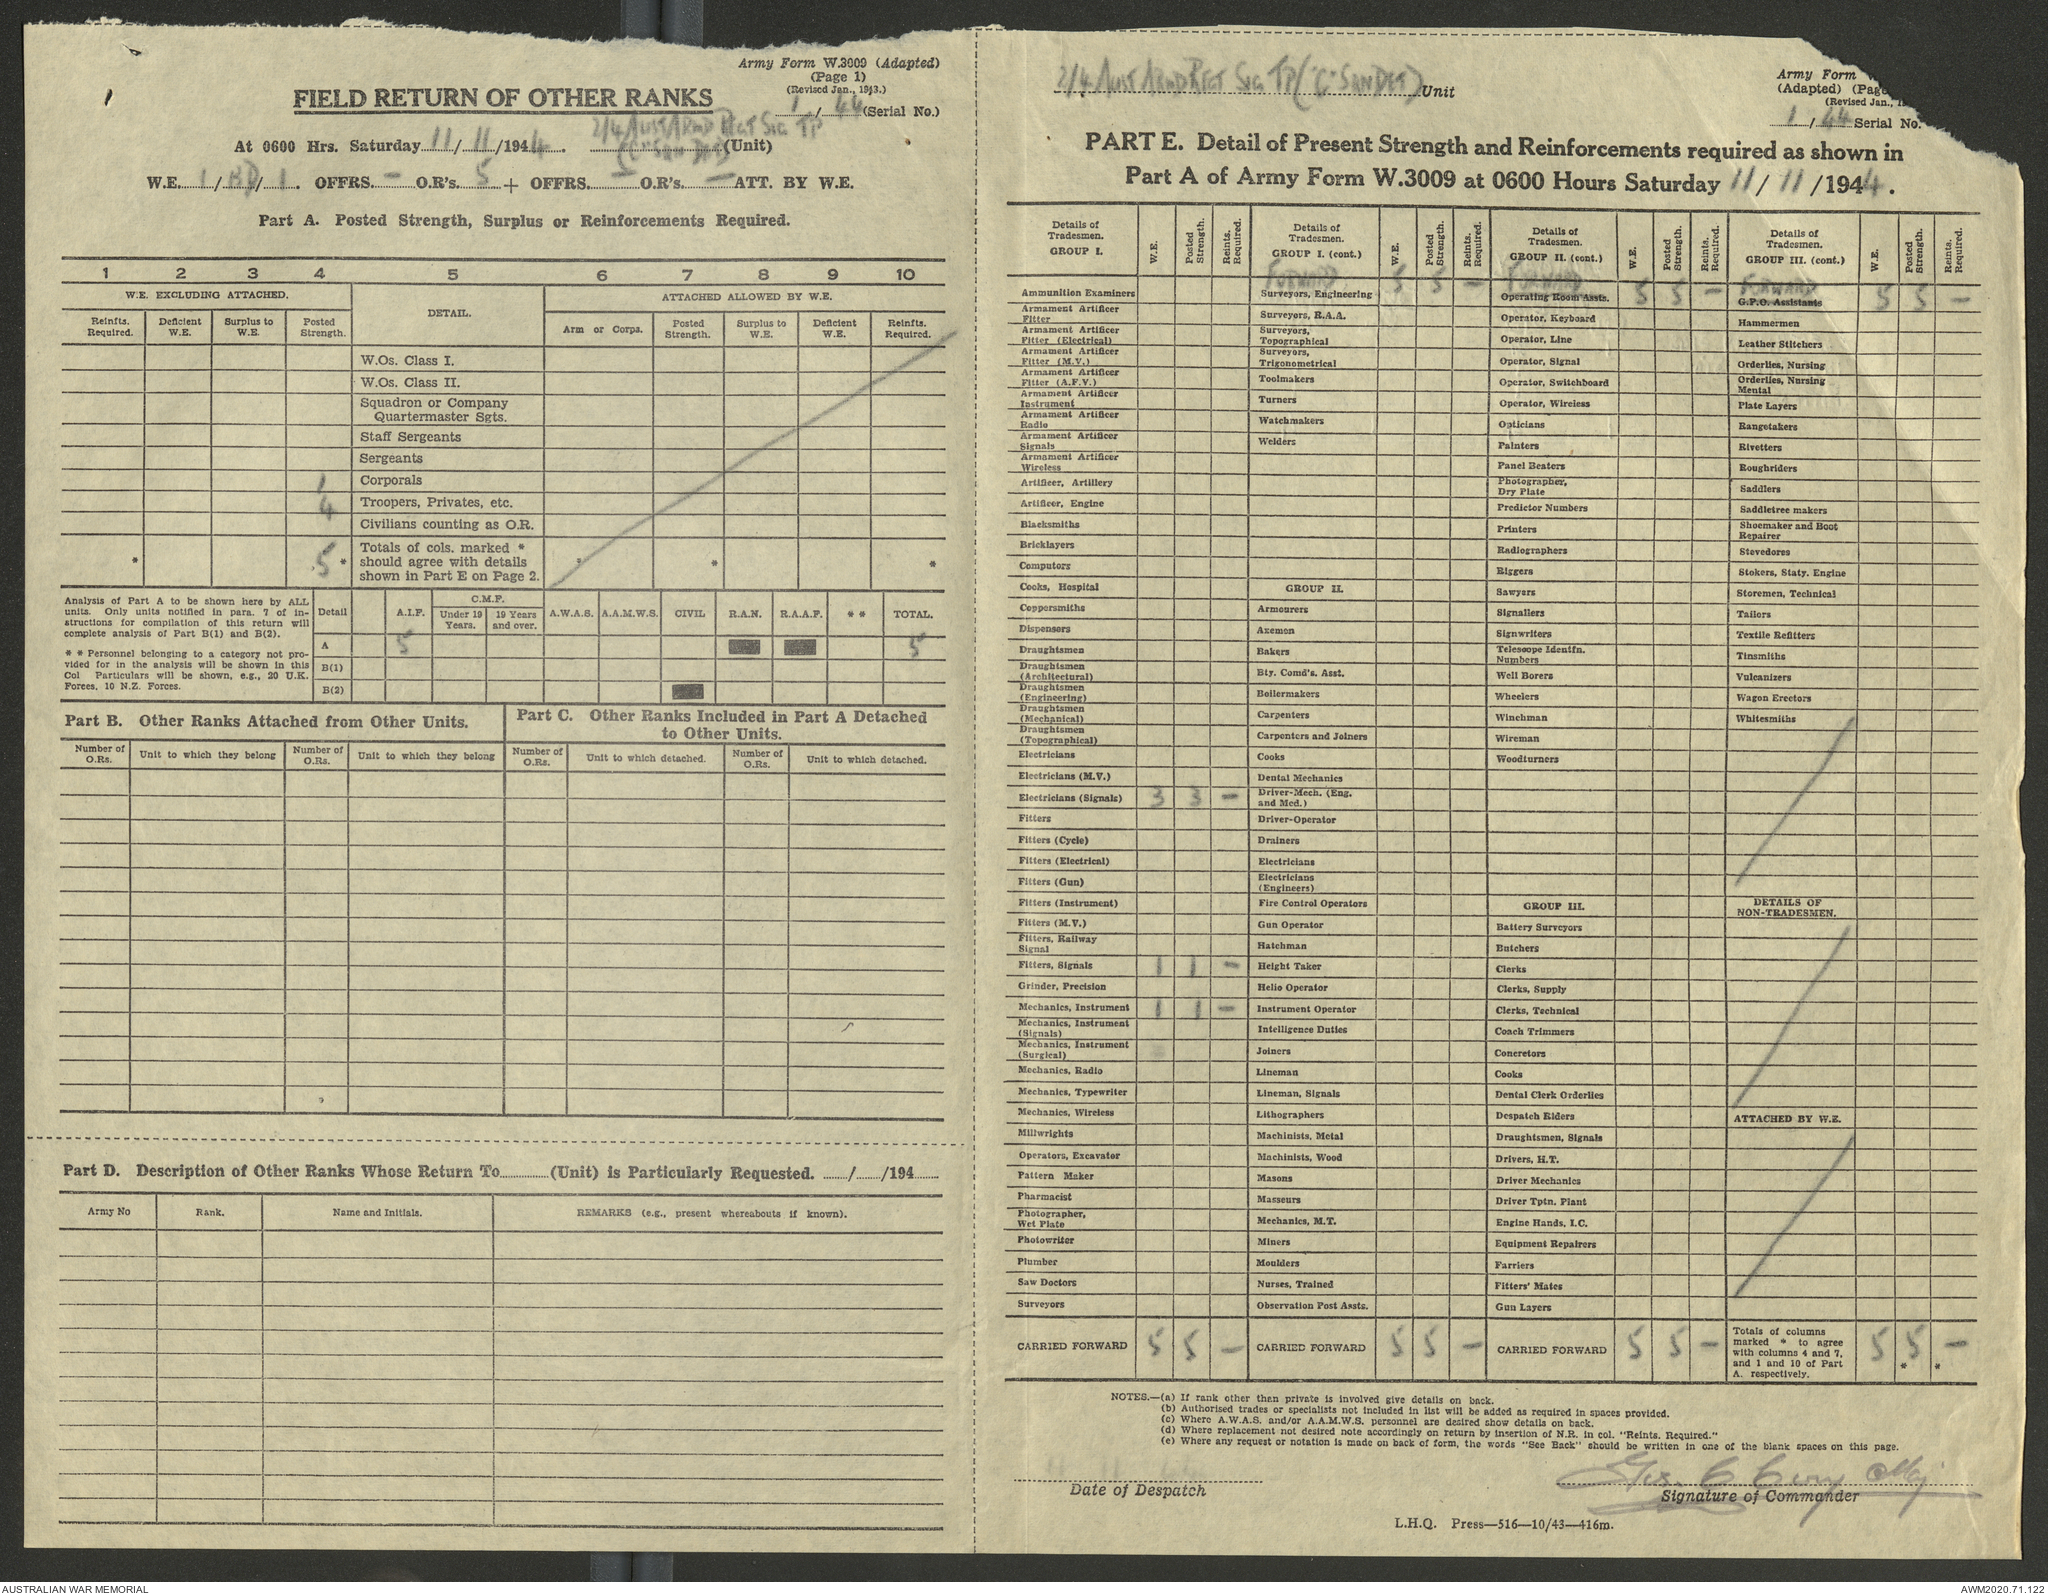 Army Form W.3009 (Adapted)
(Page 1)
(Revised Jan., 1943.)
FIELD RETURN OF OTHER RANKS
1 / 44 (Serial No.)
2/4 AUST ARMD REGT SIG TP
At 0600 Hrs. Saturday 11 / 11 /1944. ("C" SQN DET) (Unit)
W.E. 1 / BD / 1. OFFRS. — O.R's. 5 + OFFRS. — O.R's. — ATT. BY W.E.
Part A. Posted Strength, Surplus or Reinforcements Required.
1 2 3 4 5 6 7 8 9 10
W.E. EXCLUDING ATTACHED. DETAIL. ATTACHED ALLOWED BY W.E.
Reinfts. Required. Deficient W.E. Surplus to W.E. Posted Strength. Arm or Corps. Posted Strength. Surplus to W.E. Deficient W.E. Reinfts. Required.
W.Os. Class I.
W.Os. Class II.
Squadron or Company
Quartermaster Sgts.
Staff Sergeants
Sergeants
1 Corporals
4 Troopers, Privates, etc.
Civilians counting as O.R.
Totals of cols. marked *
* 5 * should agree with details * * *
shown in Part E on Page 2.
Analysis of Part A to be shown here by ALL
units. Only units notified in para. 7 of in-
structions for compilation of this return will
complete analysis of Part B(1) and B(2).
* * Personnel belonging to a category not pro-
vided for in the analysis will be shown in this
Col Particulars will be shown, e.g., 20 U.K.
Forces, 10 N.Z. Forces.
Detail A.I.F. C.M.F. Under 19 Years. 19 Years and over. A.W.A.S. A.A.M.W.S. CIVIL R.A.N. R.A.A.F. * * TOTAL.
A 5 5
B(1)
B(2)
Part B. Other Ranks Attached from Other Units.
Part C. Other Ranks Included in Part A Detached
to Other Units.
Number of O.Rs. Unit to which they belong Number of O.Rs. Unit to which they belong Number of O.Rs. Unit to which detached. Number of O.Rs. Unit to which detached.
Part D. Description of Other Ranks Whose Return To (Unit) is Particularly Requested. / /194
Army No Rank. Name and Initials. REMARKS (e.g., present whereabouts if known).
2/4 AUST ARMD REGT SIG TP ("C" SQN DET) Unit
Army Form
(Adapted) (Page
(Revised Jan.,
1 / 44 Serial No.
PART E. Detail of Present Strength and Reinforcements required as shown in
Part A of Army Form W.3009 at 0600 Hours Saturday 11 / 11 /1944.
Details of Tradesmen. GROUP I. W.E. Posted Strength. Reints. Required.
Ammunition Examiners
Armament Artificer Fitter
Armament Artificer Fitter (Electrical)
Armament Artificer Fitter (M.V.)
Armament Artificer Fitter (A.F.V.)
Armament Artificer Instrument
Armament Artificer Radio
Armament Artificer Signals
Armament Artificer Wireless
Artificer, Artillery
Artificer, Engine
Blacksmiths
Bricklayers
Computors
Cooks, Hospital
Coppersmiths
Dispensers
Draughtsmen
Draughtsmen (Architectural)
Draughtsmen (Engineering)
Draughtsmen (Mechanical)
Draughtsmen (Topographical)
Electricians
Electricians (M.V.)
Electricians (Signals) 3 3 —
Fitters
Fitters (Cycle)
Fitters (Electrical)
Fitters (Gun)
Fitters (Instrument)
Fitters (M.V.)
Fitters, Railway Signal
Fitters, Signals 1 1 —
Grinder, Precision
Mechanics, Instrument 1 1 —
Mechanics, Instrument (Signals)
Mechanics, Instrument (Surgical)
Mechanics, Radio
Mechanics, Typewriter
Mechanics, Wireless
Millwrights
Operators, Excavator
Pattern Maker
Pharmacist
Photographer, Wet Plate
Photowriter
Plumber
Saw Doctors
Surveyors
CARRIED FORWARD 5 5 —
Details of Tradesmen. GROUP I. (cont.) W.E. Posted Strength. Reints. Required.
FORWARD 5 5 —
Surveyors, Engineering
Surveyors, R.A.A.
Surveyors, Topographical
Surveyors, Trigonometrical
Toolmakers
Turners
Watchmakers
Welders
GROUP II.
Armourers
Axemen
Bakers
Bty. Comd's. Asst.
Boilermakers
Carpenters
Carpenters and Joiners
Cooks
Dental Mechanics
Driver-Mech. (Eng. and Med.)
Driver-Operator
Drainers
Electricians
Electricians (Engineers)
Fire Control Operators
Gun Operator
Hatchman
Height Taker
Helio Operator
Instrument Operator
Intelligence Duties
Joiners
Lineman
Lineman, Signals
Lithographers
Machinists, Metal
Machinists, Wood
Masons
Masseurs
Mechanics, M.T.
Miners
Moulders
Nurses, Trained
Observation Post Assts.
CARRIED FORWARD 5 5 —
Details of Tradesmen. GROUP II. (cont.) W.E. Posted Strength. Reints. Required.
FORWARD 5 5 —
Operating Room Assts.
Operator, Keyboard
Operator, Line
Operator, Signal
Operator, Switchboard
Operator, Wireless
Opticians
Painters
Panel Beaters
Photographer, Dry Plate
Predictor Numbers
Printers
Radiographers
Riggers
Sawyers
Signallers
Signwriters
Telescope Identfn. Numbers
Well Borers
Wheelers
Winchman
Wireman
Woodturners
GROUP III.
Battery Surveyors
Butchers
Clerks
Clerks, Supply
Clerks, Technical
Coach Trimmers
Concretors
Cooks
Dental Clerk Orderlies
Despatch Riders
Draughtsmen, Signals
Drivers, H.T.
Driver Mechanics
Driver Tptn. Plant
Engine Hands, I.C.
Equipment Repairers
Farriers
Fitters' Mates
Gun Layers
CARRIED FORWARD 5 5 —
Details of Tradesmen. GROUP III. (cont.) W.E. Posted Strength. Reints. Required.
FORWARD 5 5 —
G.P.O. Assistants
Hammermen
Leather Stitchers
Orderlies, Nursing
Orderlies, Nursing Mental
Plate Layers
Rangetakers
Rivetters
Roughriders
Saddlers
Saddletree makers
Shoemaker and Boot Repairer
Stevedores
Stokers, Staty. Engine
Storemen, Technical
Tailors
Textile Refitters
Tinsmiths
Vulcanizers
Wagon Erectors
Whitesmiths
DETAILS OF NON-TRADESMEN.
ATTACHED BY W.E.
Totals of columns marked * to agree with columns 4 and 7, and 1 and 10 of Part A. respectively. 5 5 * — *
NOTES.—(a) If rank other than private is involved give details on back.
(b) Authorised trades or specialists not included in list will be added as required in spaces provided.
(c) Where A.W.A.S. and/or A.A.M.W.S. personnel are desired show details on back.
(d) Where replacement not desired note accordingly on return by insertion of N.R. in col. "Reints. Required."
(e) Where any request or notation is made on back of form, the words "See Back" should be written in one of the blank spaces on this page.
Date of Despatch
Maj
Signature of Commander
L.H.Q. Press—516—10/43—416m.
AUSTRALIAN WAR MEMORIAL
AWM2020.71.122